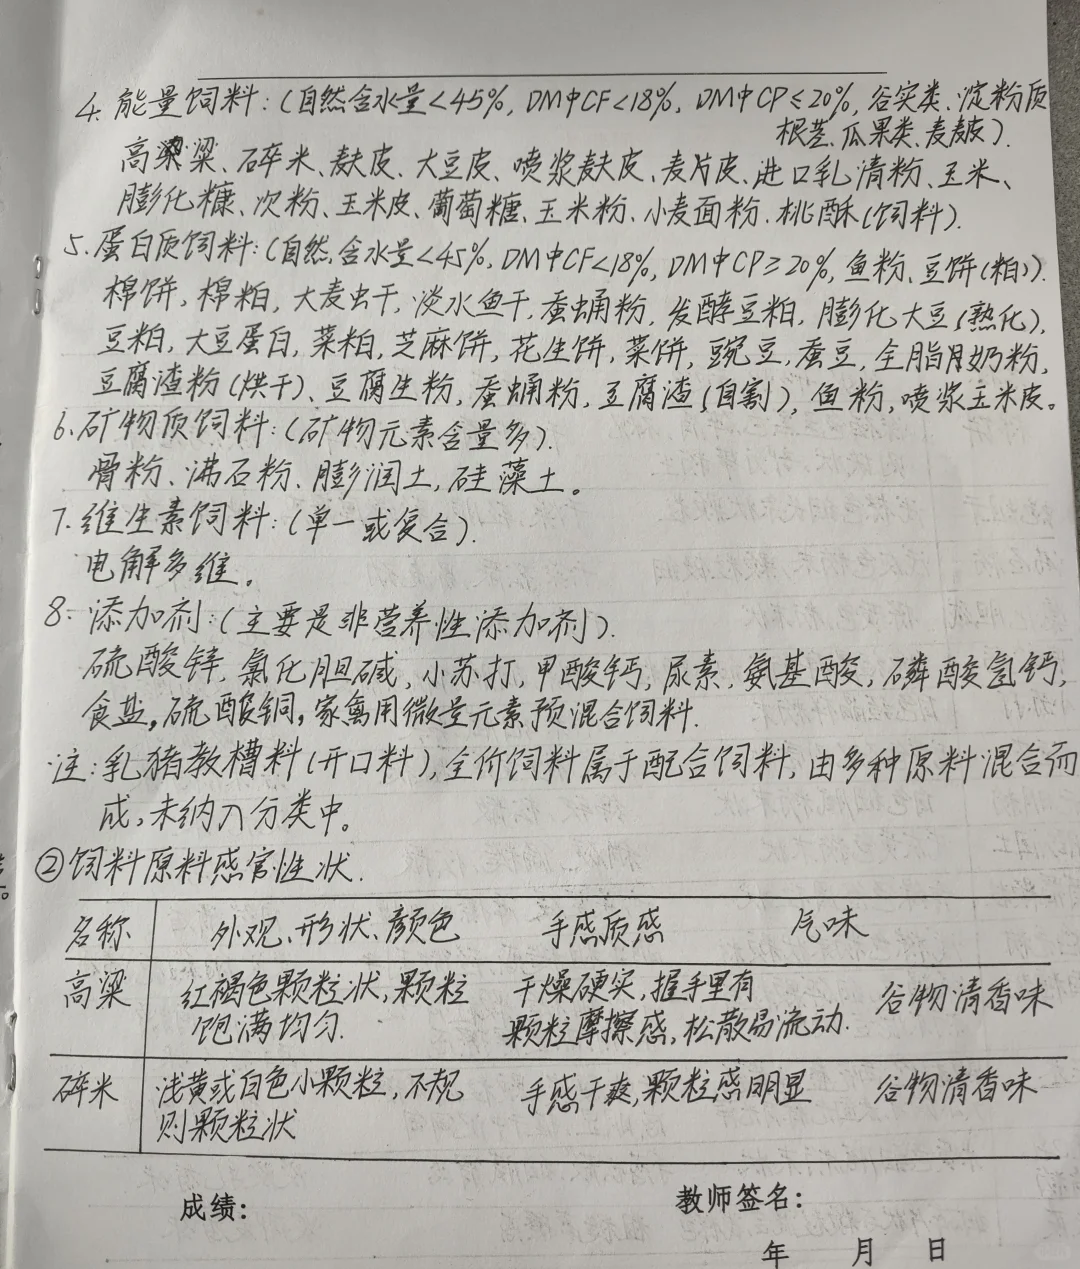 4. 能量饲料:(自然含水量<45%, DM中CF<18%, DM中CP≤20%, 谷实类、淀粉质
根茎、瓜果类、麦麸皮).
高粱、碎米、麸皮、大豆皮、喷浆麸皮、麦片皮、进口乳清粉、玉米、
膨化糠、次粉、玉米皮、葡萄糖、玉米粉、小麦面粉、桃酥(饲料).
5. 蛋白质饲料:(自然含水量<45%, DM中CF<18%, DM中CP≥20%, 鱼粉、豆饼(粕)).
棉饼, 棉粕, 大麦虫干, 淡水鱼干, 蚕蛹粉, 发酵豆粕, 膨化大豆(熟化),
豆粕, 大豆蛋白, 菜粕, 芝麻饼, 花生饼, 菜饼, 豌豆, 蚕豆, 全脂奶粉,
豆腐渣粉(烘干)、豆腐生粉, 蚕蛹粉, 豆腐渣(自割), 鱼粉, 喷浆玉米皮。
6. 矿物质饲料:(矿物元素含量多).
骨粉、沸石粉、膨润土, 硅藻土。
7. 维生素饲料:(单一或复合).
电解多维。
8. 添加剂:(主要是非营养性添加剂).
硫酸锌, 氯化胆碱, 小苏打, 甲酸钙, 尿素, 氨基酸, 磷酸氢钙,
食盐, 硫酸铜, 家禽用微量元素预混合饲料.
注:乳猪教槽料(开口料), 全价饲料属于配合饲料, 由多种原料混合而
成, 未纳入分类中。
②饲料原料感官性状.
名称 外观、形状、颜色 手感质感 气味
高粱 红褐色颗粒状, 颗粒 干燥硬实, 握手里有 谷物清香味
饱满均匀. 颗粒摩擦感, 松散易流动.
碎米 浅黄或白色小颗粒, 不规 手感干爽, 颗粒感明显 谷物清香味
则颗粒状
成绩: 教师签名:
年 月 日